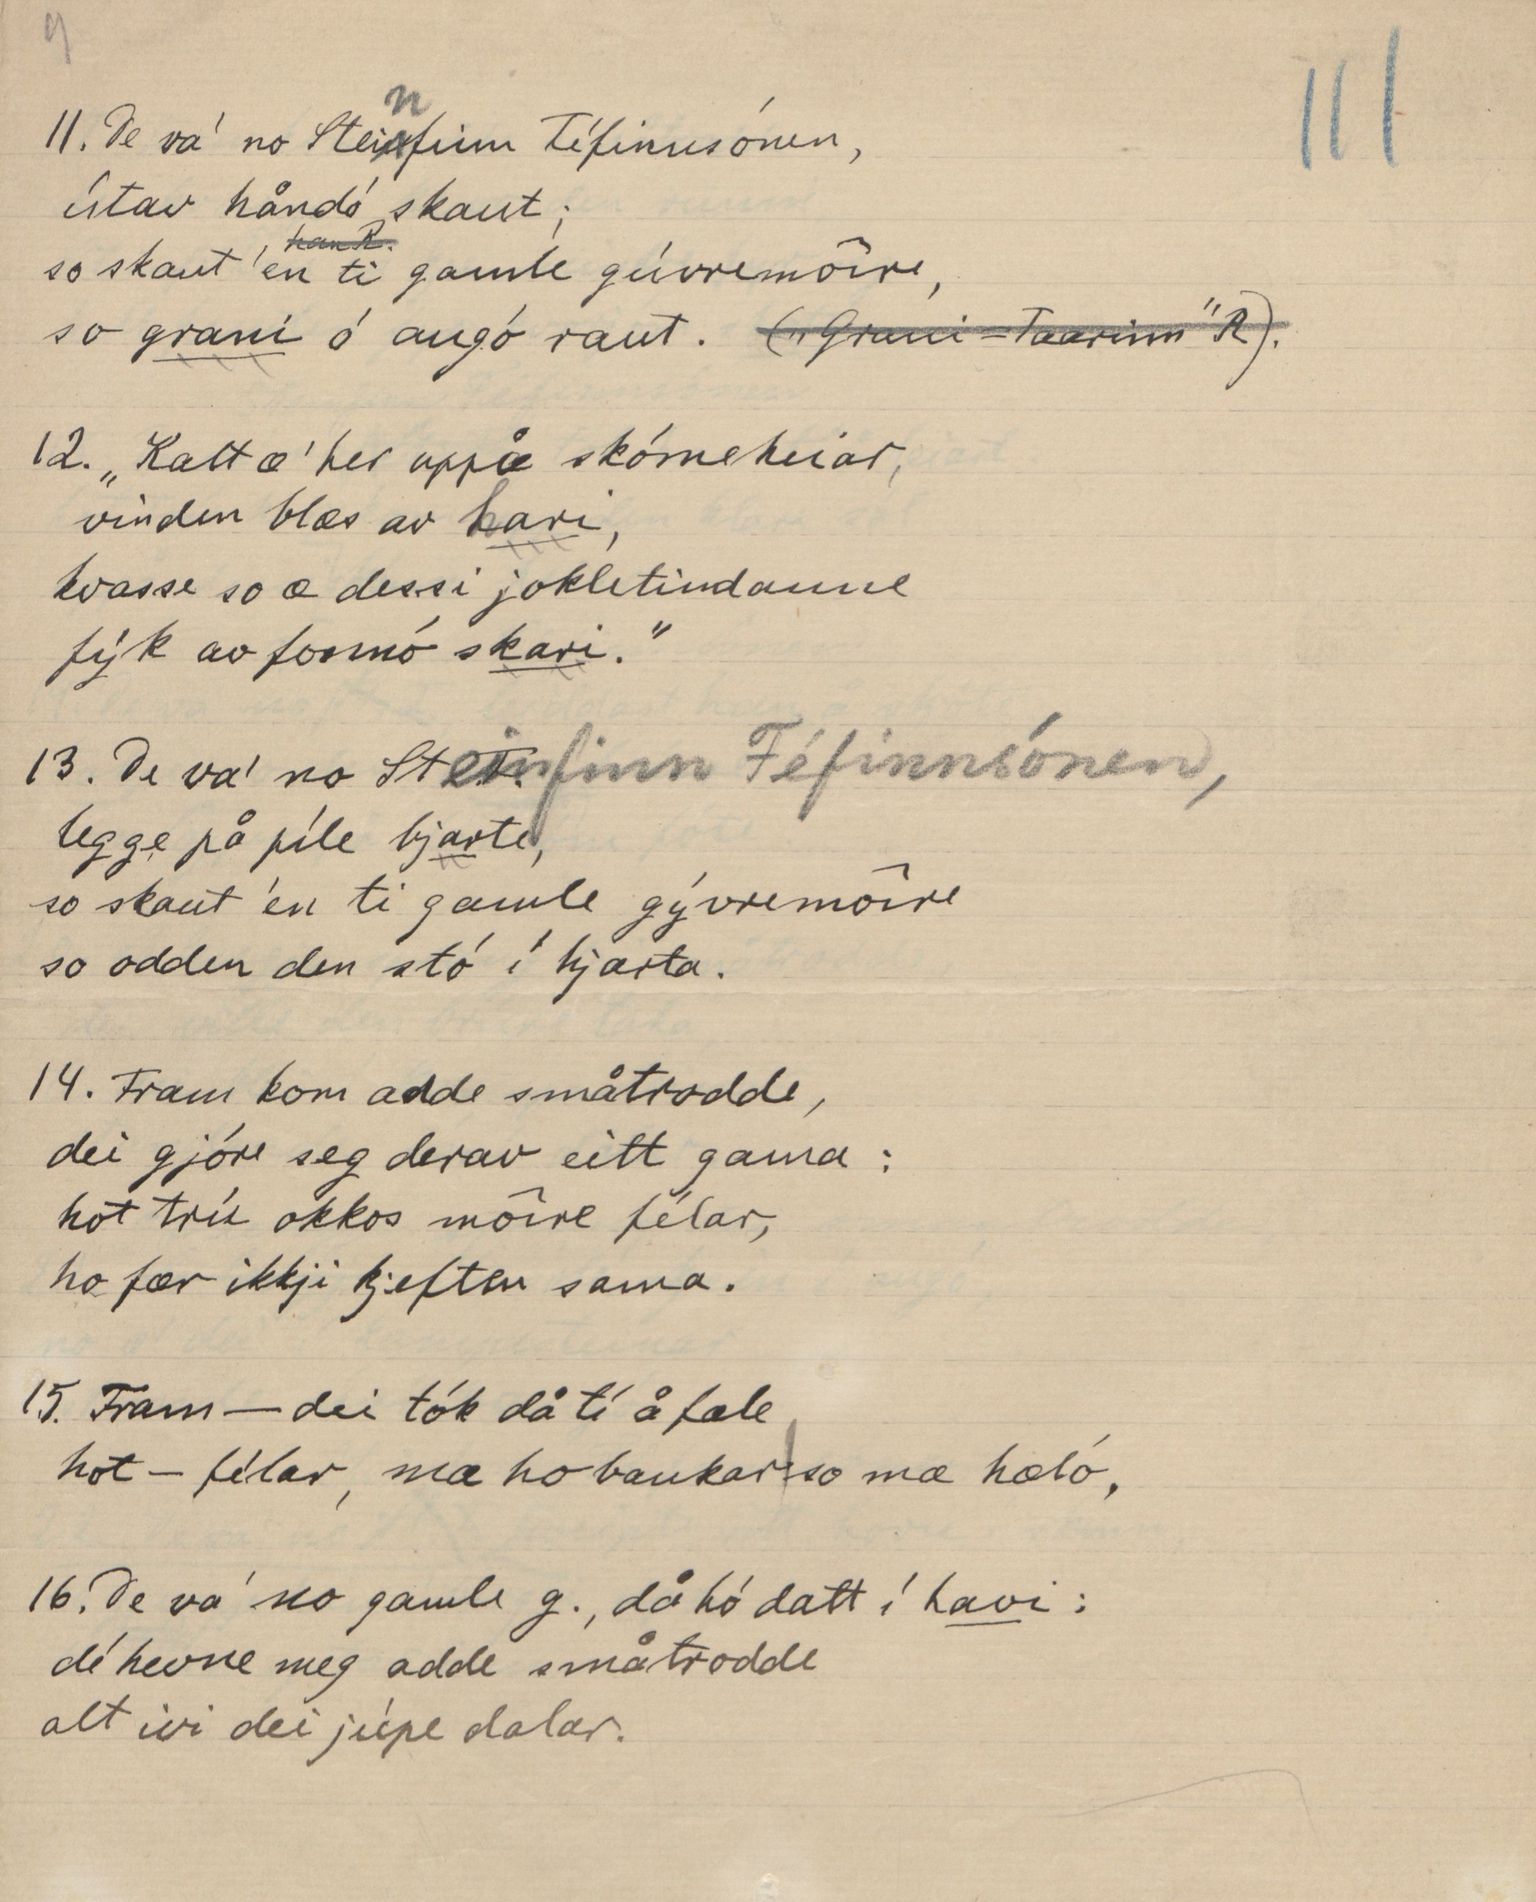 9
111
11. De va' no Steinfinn Féfinnsónen,
ístav håndó skaut;
han R.
so skaut 'en ti gamle gúvremôire,
so grani ó augó raut. („Grani = Taarinn" R).
12. „Kalt æ' her uppå skómeheiar,
vinden blæs av hari,
kvasse so æ dessi jokletindanne
fýk av fonnó skari."
13. De va' no Steinfinn Féfinnsónen,
legge på píle bjarte,
so skaut 'en ti gamle gývremôire
so odden den stó í hjarta.
14. Fram kom adde småtrodde,
dei gjóre seg derav eitt gama:
hot trú okkos môire félar,
ho fær ikkji kjeften sama.
15. Fram — dei tók då tí å fæle
hot — félar, mæ ho baukar so mæ hæló.
16. De va' no gamle g., då hó datt í havi:
dé hevne meg adde småtrodde
alt ivi dei júpe dalar.